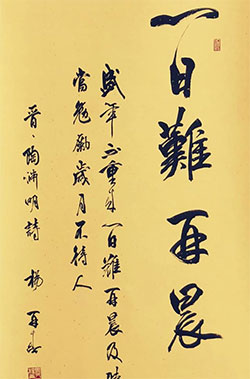 一日難再晨
盛年不重来一日難再晨及時
當勉勵歲月不待人
晋、陶渊明詩 楊再春